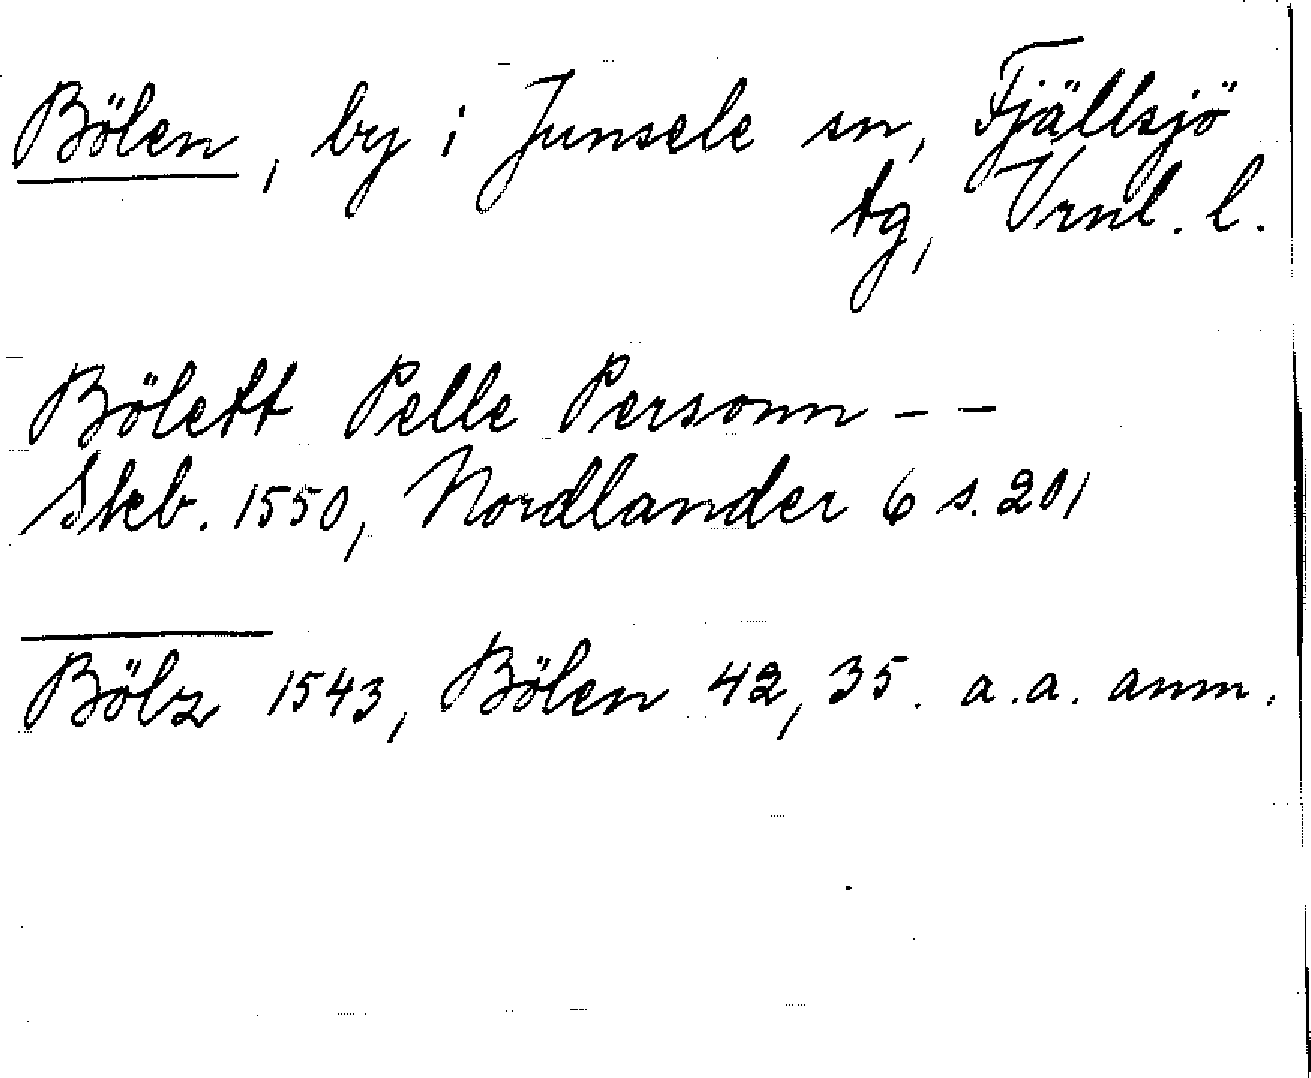 Bölen, by i Junsele sn, Fjällsjö
tg, Vrnl. l.
Bölett Pelle Personn - -
Skb. 1550, Nordlander 6 s. 201
Bölz 1543, Bölen 42, 35. a.a. anm.